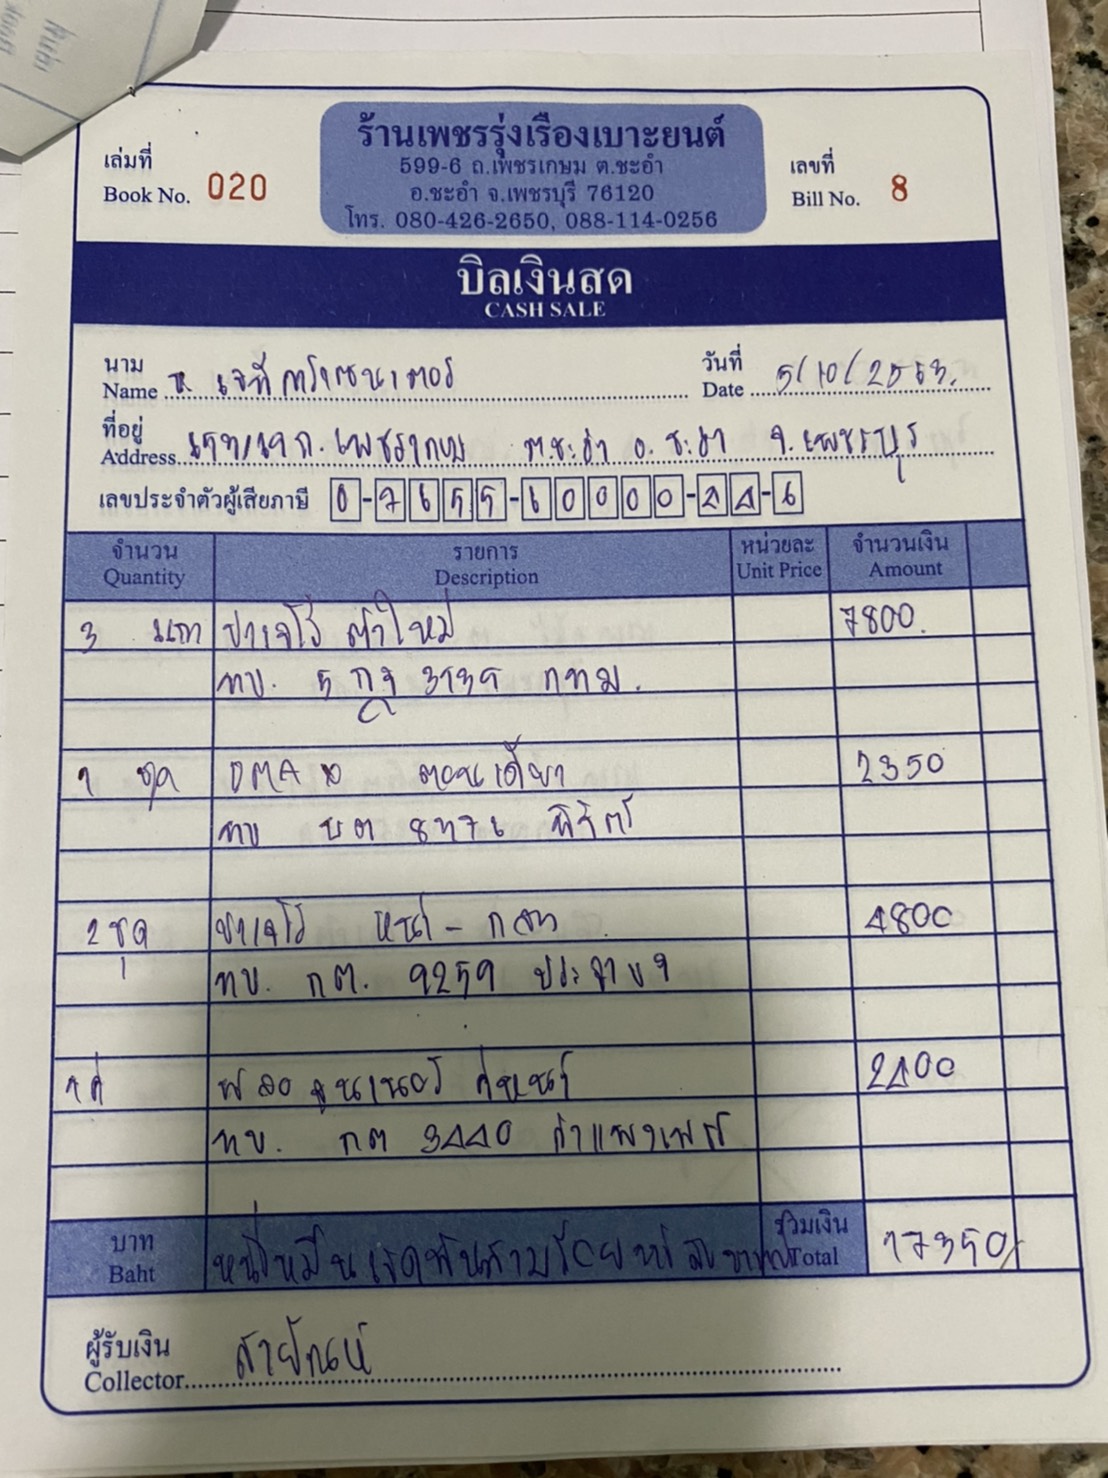 ร้านเพชรรุ่งเรืองเบาะยนต์
599-6 ถ.เพชรเกษม ต.ชะอำ
อ.ชะอำ จ.เพชรบุรี 76120
โทร. 080-426-2650, 088-114-0256
เล่มที่
Book No. 020
เลขที่
Bill No. 8
บิลเงินสด
CASH SALE
นาม
Name
วันที่
Date 5/10/2563.
ที่อยู่
Address ถ. เพชรเกษม ต.ชะอำ อ. ชะอำ จ. เพชรบุรี
เลขประจำตัวผู้เสียภาษี 0-7655-60000-244-6
จำนวน รายการ หน่วยละ จำนวนเงิน
Quantity Description Unit Price Amount
3 แถว ปาเจโร่ ตัวใหม่ 7800.
ทบ. 5 กฎ 3139 กทม.
1 ชุด DMAX ตอนเดียว 2350
ทบ บต 8176 พิจิตร
2 ชุด ปาเจโร่ หน้า - กลาง 4800
ทบ. กต. 9259 ประจวบฯ
1 คู่ ฟอจูนเนอร์ คู่หน้า 2400
ทบ. กต 3440 กำแพงเพชร
บาท หนึ่งหมื่นเจ็ดพันสามร้อยห้าสิบบาท รวมเงิน 17350/
Baht Total
ผู้รับเงิน
Collector สายัณห์